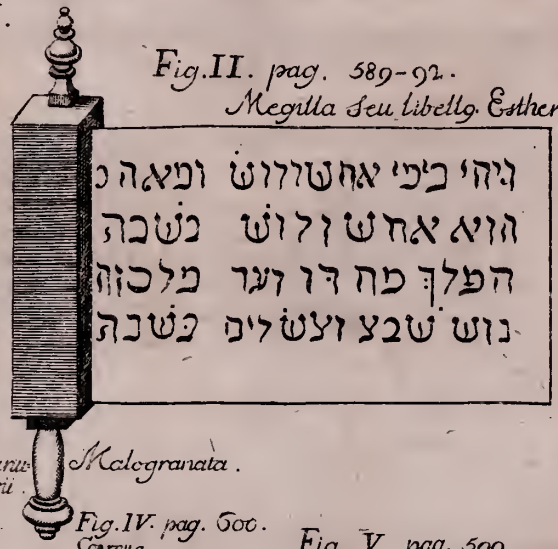 Fig. II. pag. 589-92.
Megilla seu libellq. Esther
ויהי בימי אחשורוש ומאה כ
הוא אחש ולוש בשבה
המלך מח דו ועד מלכזה
נוש שבצ וצשלים בשנת
Malogranata.
Fig. IV. pag. 600.
Fig. V. pag.